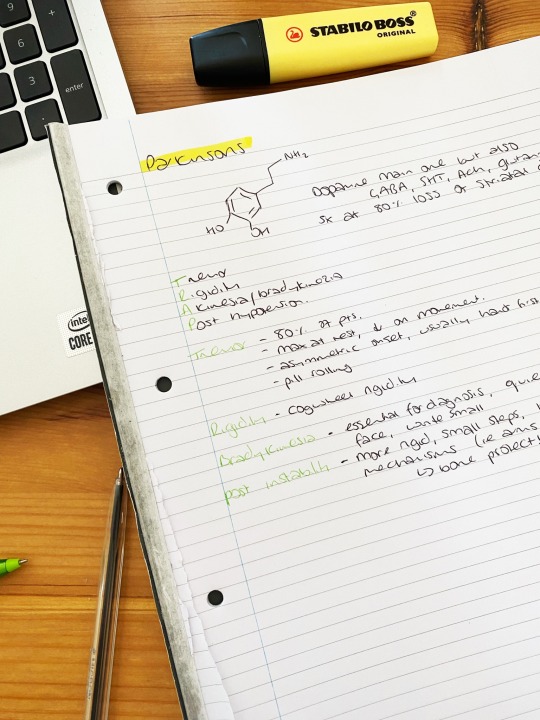 9
+
6
3
enter
.
intel
CORE
STABILO BOSS
ORIGINAL
Parkinsons
NH2
HO
OH
Dopamine main one but also
GABA, 5HT, Ach,
Sx at 80% loss of striatal
Tremor
Rigidity
Akinesia/bradykinezia
Post hypotension.
Tremor - 80% of pts.
- max at rest, ↓ on movement.
- asymmetric onset, usually hand first
- pill rolling
Rigidity - Cogwheel rigidity
Bradykinesia - essential for diagnosis,
face, write small
post instability - more rigid, small steps,
mechanisms (ie arms
↳ bone protect